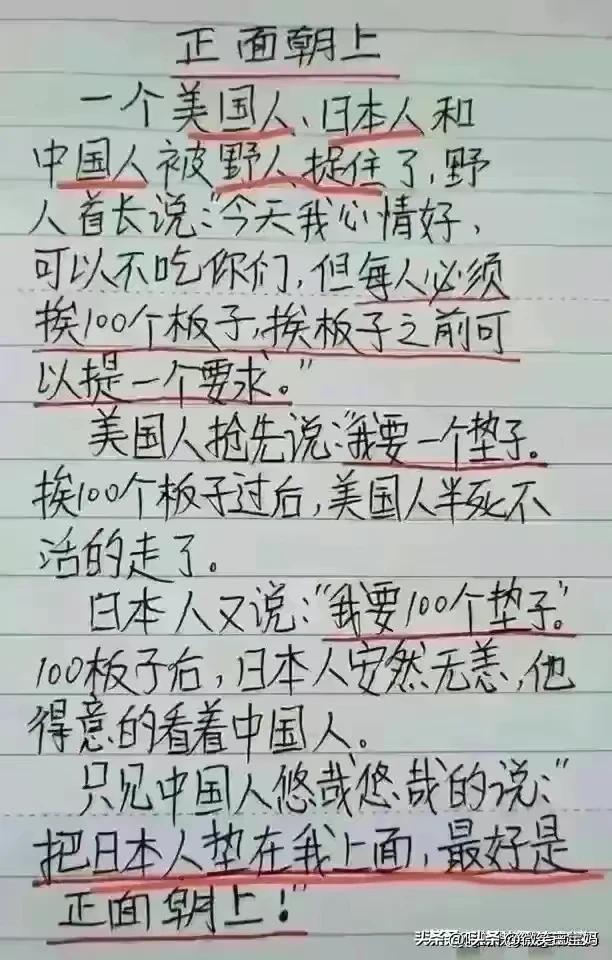 正面朝上
一个美国人、日本人和
中国人被野人捉住了,野
人酋长说:"今天我心情好,
可以不吃你们,但每人必须
挨100个板子,挨板子之前可
以提一个要求。"
美国人抢先说:"我要一个垫子。
挨100个板子过后,美国人半死不
活的走了。
日本人又说:"我要100个垫子。"
100板子后,日本人安然无恙,他
得意的看着中国人。
只见中国人悠哉悠哉的说:"
把日本人垫在我上面,最好是
正面朝上!"